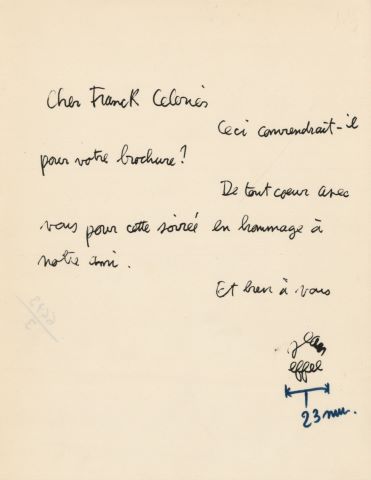 Cher Franck
Ceci conviendrait-il
pour votre brochure ?
De tout coeur avec
vous pour cette soirée en hommage à
notre ami .
Et bien à vous
Jean
effel
23 mm.